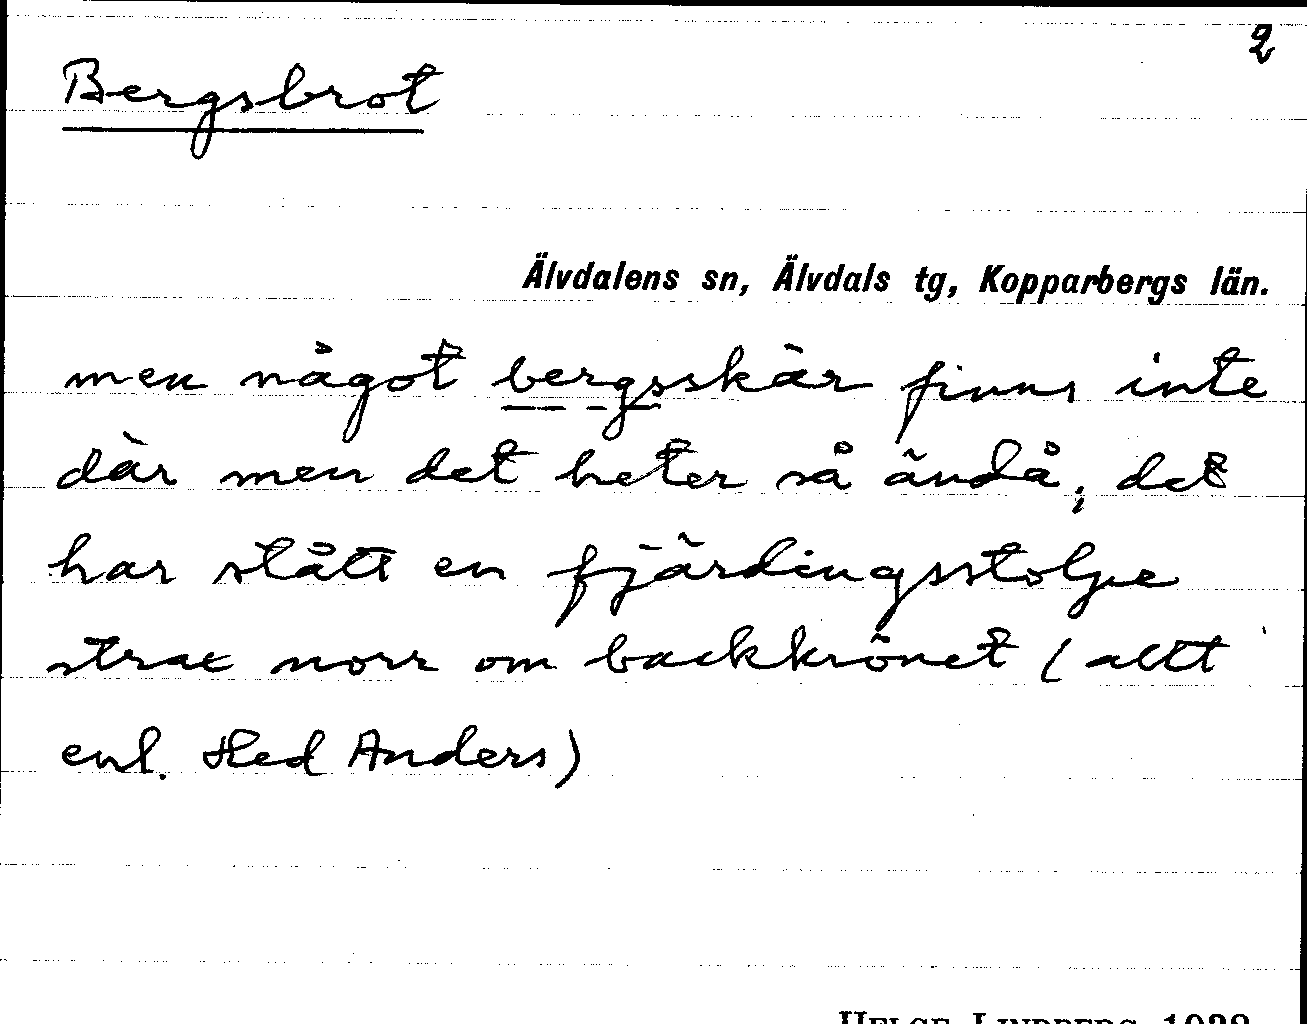 2
Bergsbrot
Älvdalens sn, Älvdals tg, Kopparbergs län.
men något bergsskär finns inte
där men det heter så ändå, det
har stått en fjärdingsstolpe
strax norr om backkrönet (allt
enl. Hed Anders)